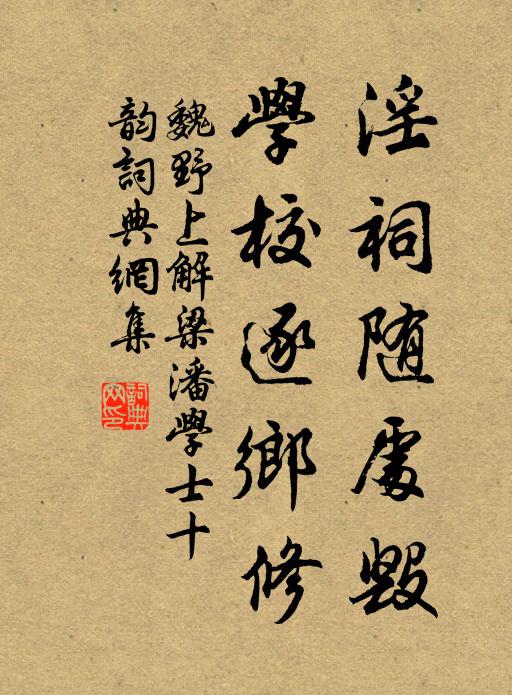 淫祠随處毀
學校逐鄉修
魏野上解梁潘學士十
韵詞典網集
詞典網印